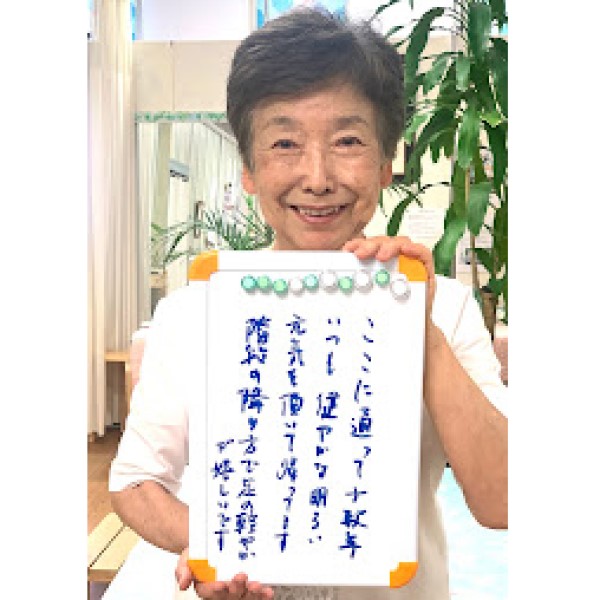 ここに通って十数年
いつも健やかな明るい
元気を頂いて帰ってます
階段の降り方で足の軽やか
で嬉しいです